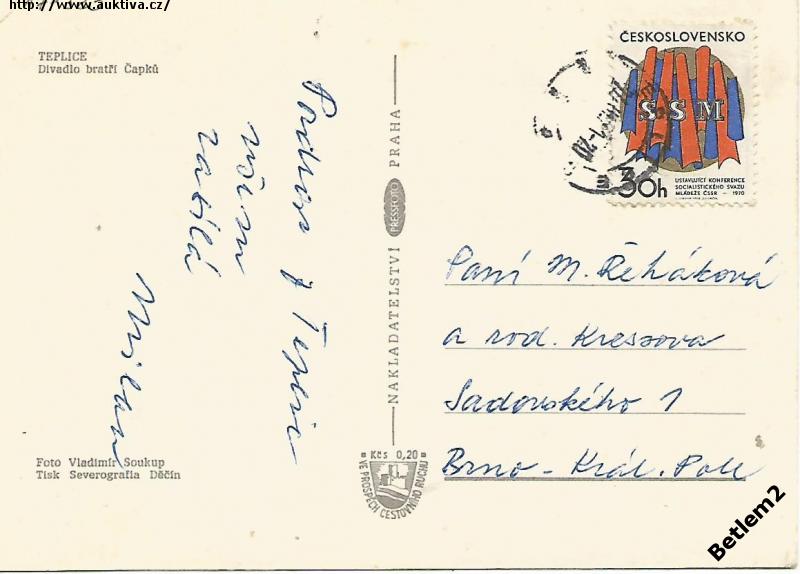 http://www.auktiva.cz/
TEPLICE
Divadlo bratří Čapků
Pozdrav z Teplic
všem
zasílá
Milan
Foto Vladimír Soukup
Tisk Severografia Děčín
NAKLADATELSTVÍ PRESSFOTO PRAHA
Kčs 0,20
VE PROSPĚCH CESTOVNÍHO RUCHU
ČESKOSLOVENSKO
SSM
30h
USTAVUJÍCÍ KONFERENCE
SOCIALISTICKÉHO SVAZU
MLÁDEŽE ČSSR - 1970
Paní M. Řeháková
a rod. Kreszova
Sadovského 1
Brno - Král. Pole
Betlem2